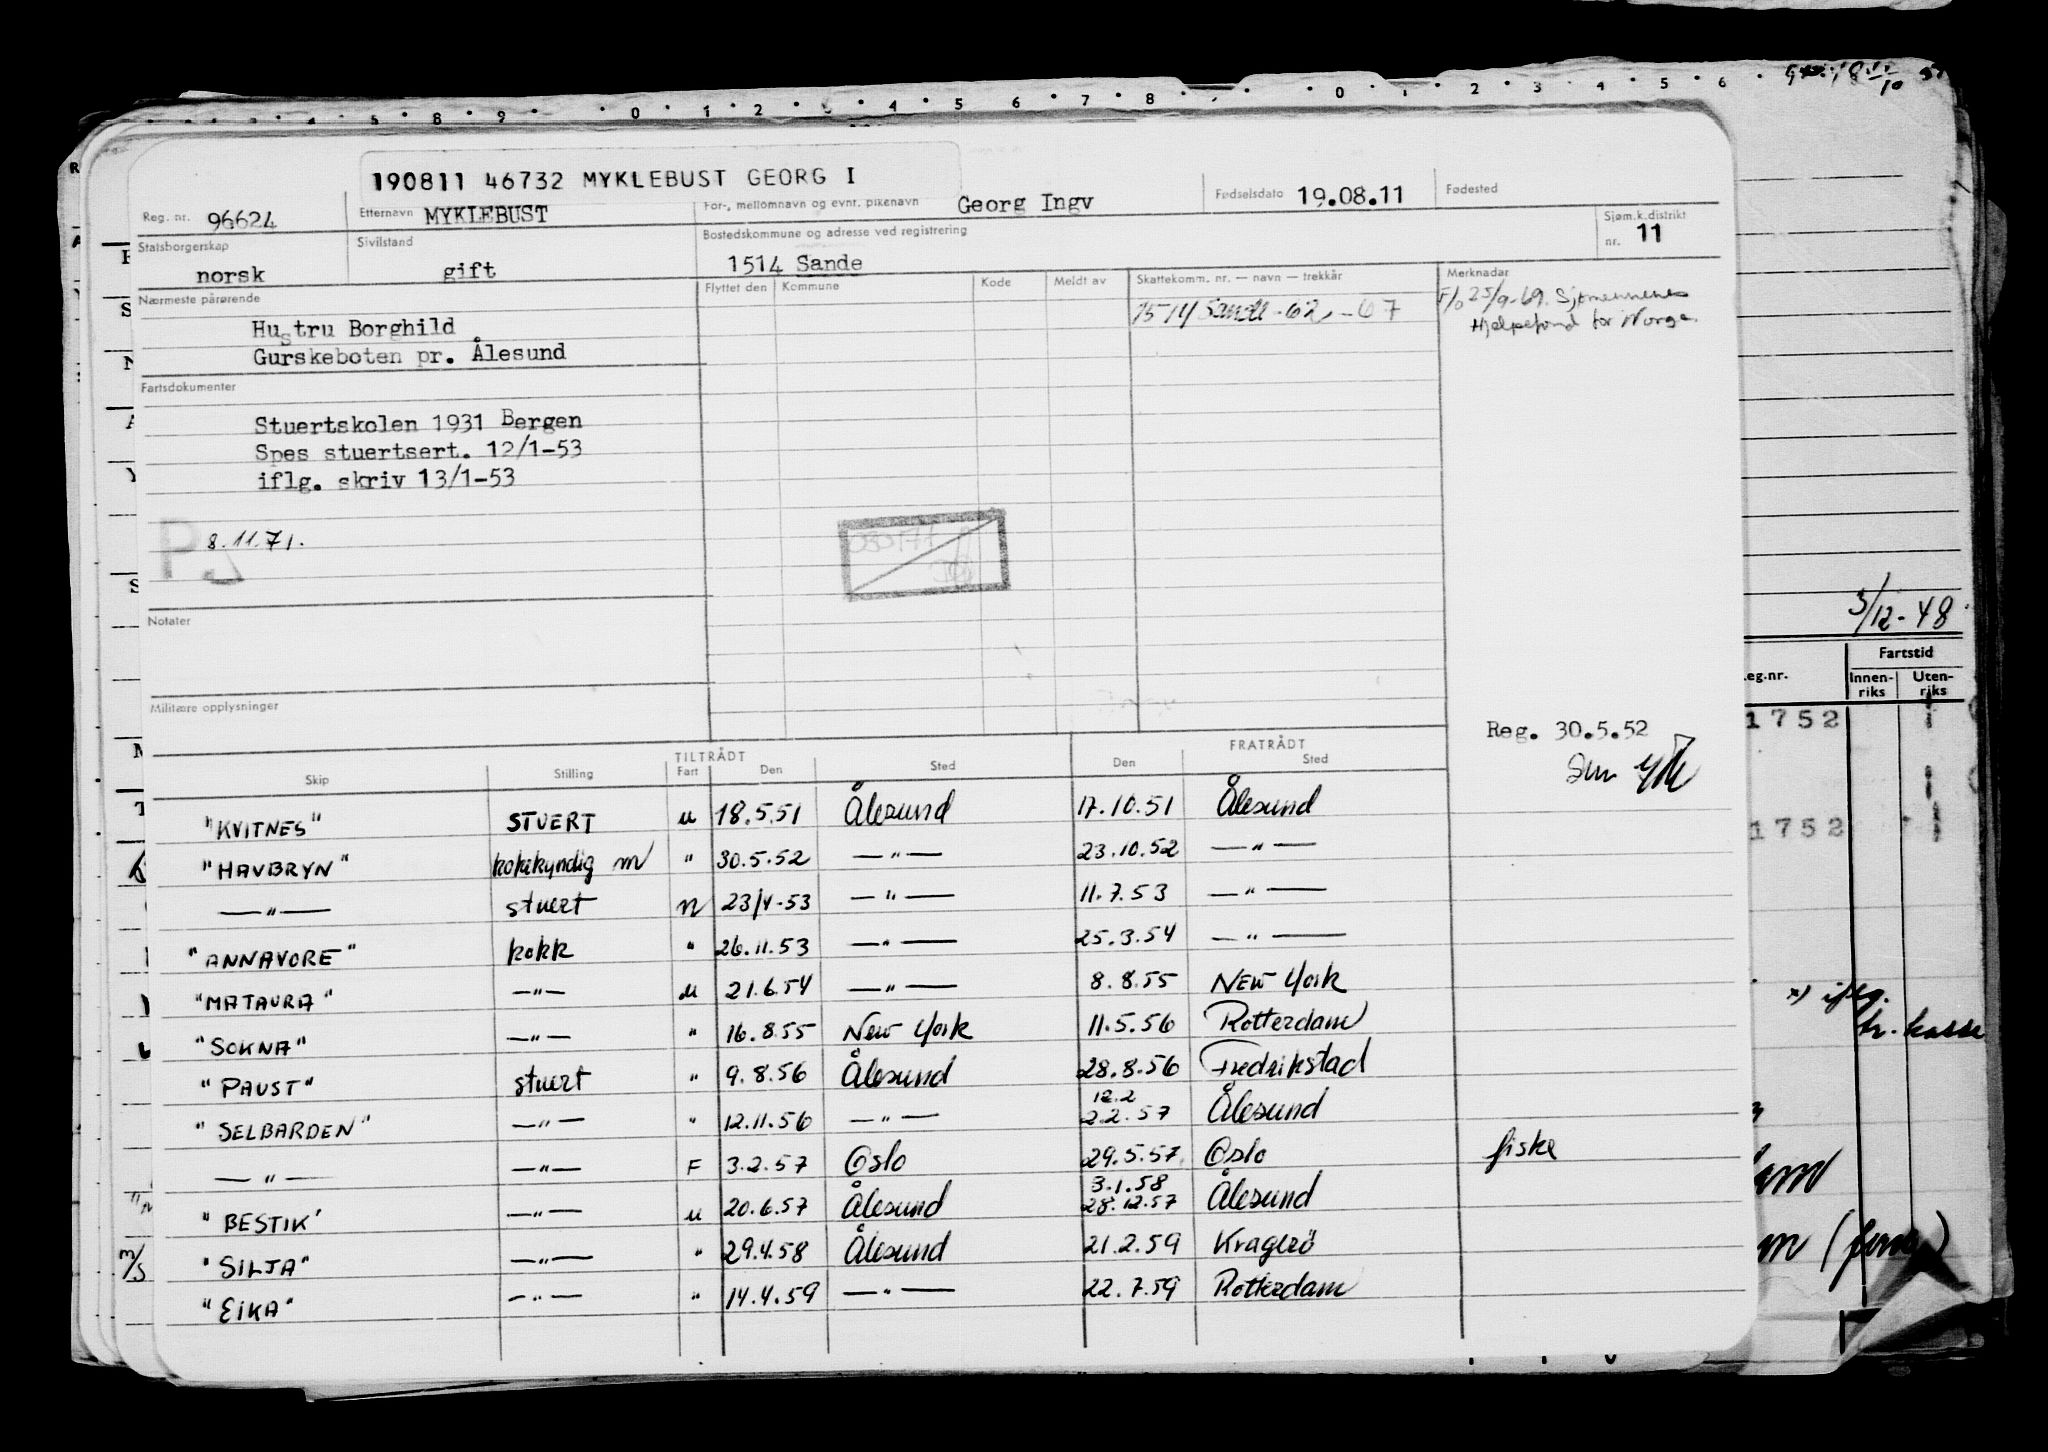 190811 46732 MYKLEBUST GEORG I
Reg. nr. 96624 Etternavn MYKLEBUST For-, mellomnavn og evnt. pikenavn Georg Ingv Fødselsdato 19.08.11 Fødested
Statsborgerskap norsk Sivilstand gift Bostedskommune og adresse ved registrering 1514 Sande Sjøm.k.distrikt nr. 11
Nærmeste pårørende Flyttet den Kommune Kode Meldt av Skattekomm. nr. — navn — trekkår Merknadar
Hustru Borghild 1514 Sande - 62 - 67 F/o 25/9-69. Sjømennenes
Gurskeboten pr. Ålesund Hjelpefond for Norge
Fartsdokumenter
Stuertskolen 1931 Bergen
Spes stuertsert. 12/1-53
iflg. skriv 13/1-53
P 8.11.71.
Notater
Militære opplysninger
Reg. 30.5.52
TILTRÅDT FRATRÅDT
Skip Stilling Fart Den Sted Den Sted
"KVITNES" STUERT u 18.5.51 Ålesund 17.10.51 Ålesund
"HAVBRYN" kokekyndig m " 30.5.52 — " — 23.10.52 — " —
— " — stuert n 23/4-53 — " — 11.7.53 — " —
"ANNAVORE" kokk " 26.11.53 — " — 25.3.54 — " —
"MATAURA" — " — u 21.6.54 — " — 8.8.55 New York
"SOKNA" — " — " 16.8.55 New York 11.5.56 Rotterdam
"PAUST" stuert " 9.8.56 Ålesund 28.8.56 Fredrikstad
12.2
"SELBARDEN" — " — " 12.11.56 — " — 2.2.57 Ålesund
— " — — " — F 3.2.57 Oslo 29.5.57 Oslo fiske
3.1.58
"BESTIK' — " — u 20.6.57 Ålesund 28.12.57 Ålesund
"SILJA" — " — " 29.4.58 Ålesund 21.2.59 Kragerö
"EIKA" — " — " 14.4.59 — " — 22.7.59 Rotterdam
3/12-48
eg.nr. Fartstid
Innenriks Utenriks
1752
1752
x) iflg.
tr. kasse